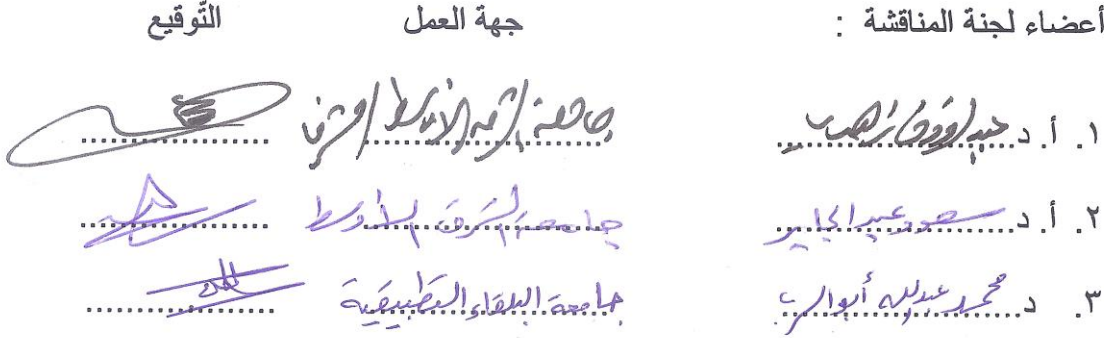 أعضاء لجنة المناقشة : جهة العمل التّوقيع
١. أ. د. عبدالرؤوف زهدي جامعة الشرق الأوسط / مشرفا
٢. أ. د. سعود عبدالجابر جامعة الشرق الأوسط
٣. د. محمد عبدالله أبوالرب جامعة البلقاء التطبيقية